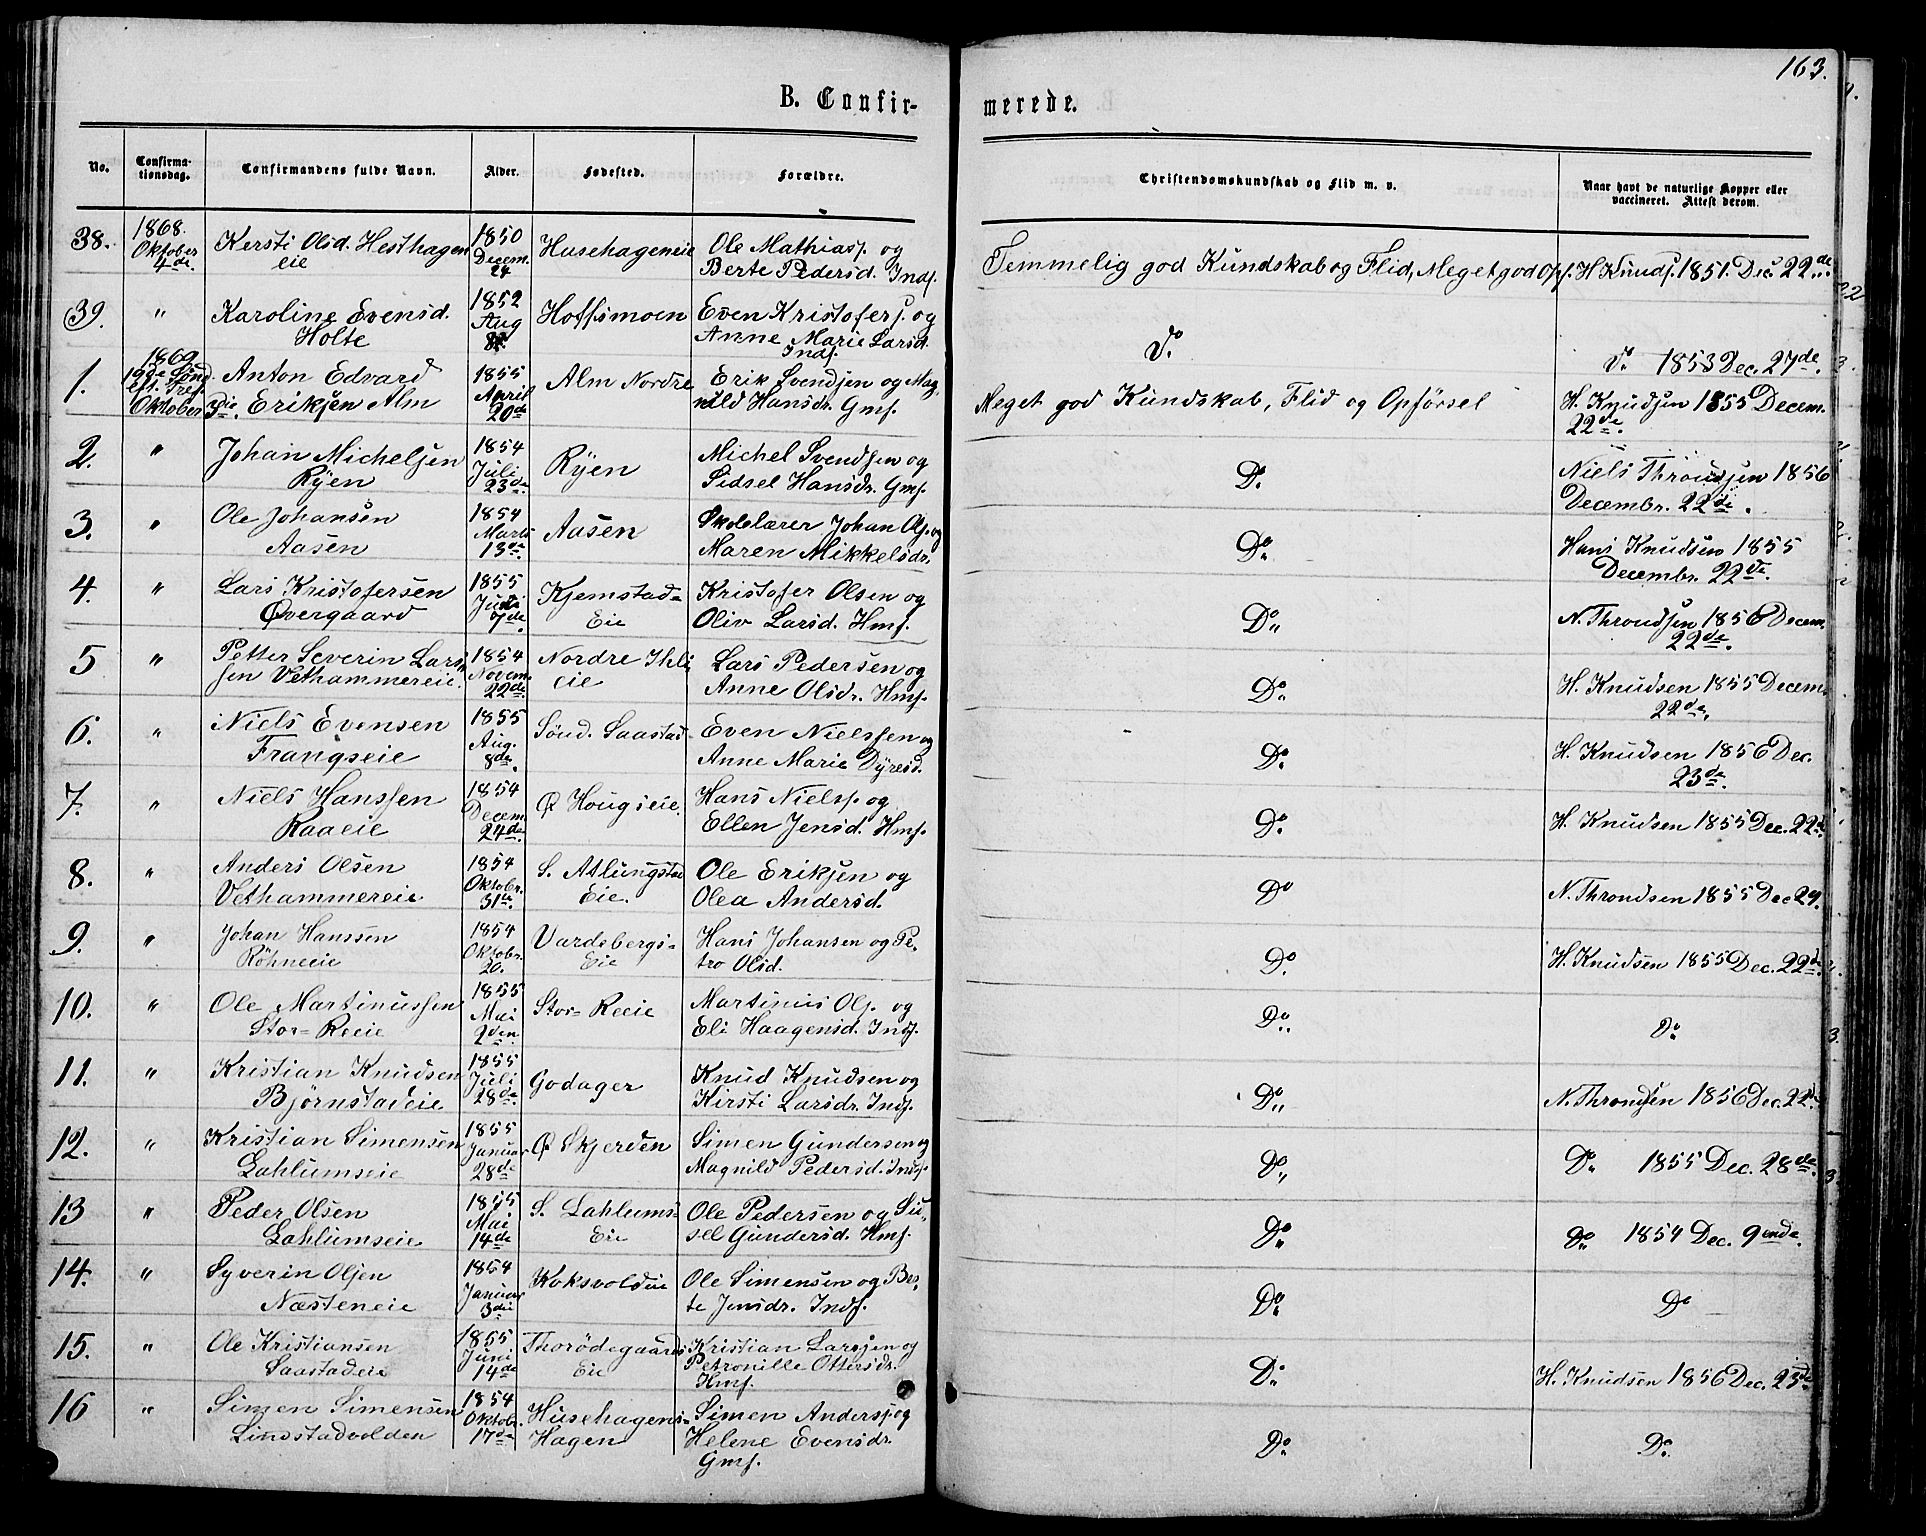 163.
B. Confir-
merede.
No.
Confirma-
tionsdag.
Confirmandens fulde Navn.
Alder.
Fødested.
Forældre.
Christendomskundskab og Flid m. v.
Naar havt de naturlige Kopper eller
vaccineret. Attest derom.
38.
1868.
Oktober
4de.
Kersti Olsd. Hesthagen
eie
1850
Decem.
24
Husehageneie
Ole Mathiasf. og
Berte Pedersd. Indf.
Temmelig god Kundskab og Flid, Meget god Opf.
H. Knudf. 1851. Dec. 22de
39.
"
Karoline Evensd.
Holte
1852
Aug
Hoffsmoen
Even Kristoferf. og
Anne Marie Larsd.
Indf.
Do
Do 1853 Dec. 27de.
1.
1869
19de Sønd.
eft. Tref.
Oktober 3die.
Anton Edvard
Eriksen Alm
1855
April
20de
Alm Nordre
Erik Svendsen og Mag
nild Hansdr. Gmf.
Meget god Kundskab, Flid og Opførsel
H. Knudsen 1855 Decem.
22de.
2.
"
Johan Michelsen
Ryen
1854
Juli
23de
Ryen
Michel Svendsen og
Sidsel Hansdr. Gmf.
Do
Niels Throndsen 1856
Decembr. 22de.
3.
"
Ole Johansen
Aasen
1854
Marts
13de
Aasen
Skolelærer Johan Olf. og
Maren Mikkelsdr.
Do
Hans Knudsen 1855
Decembr. 22de.
4.
"
Lars Kristofersen
Øvergaard
1855
7de
Kjemstad-
Eie
Kristofer Olsen og
Oliv Larsd. Hmf.
Do
N. Throndsen 1856 Decem.
22de.
5
"
Petter Severin Lars
sen Vethammereie.
1854
Novem.
22de
Nordre Ihli
eie
Lars Pedersen og
Anne Olsdr. Hmf.
Do
H. Knudsen 1855 Decem.
22de.
6.
"
Niels Evensen
Frangseie
1855
Aug.
8de.
Sønd. Saastad
Even Nielssen og
Anne Marie Dyresd.
Do
H. Knudsen 1856 Dec.
23de.
7.
"
Niels Hanssen
Raaeie
1854
Decem.
24de
Ø Hougseie.
Hans Nielsf. og
Ellen Jensd. Hmf.
Do
H. Knudsen 1855 Dec. 22de
8.
"
Anders Olsen
Vethammereie
1854
Oktobr.
31te.
S. Atlungstad
Eie.
Ole Eriksen og
Olea Andersd.
Do
N. Throndsen 1855 Dec 29.
9.
"
Johan Hanssen
Röhneeie
1854
Oktobr.
20.
Vardebergs-
Eie
Hans Johansen og Pe-
tro Olsd.
Do
H. Knudsen 1855 Dec. 22de
10.
"
Ole Martinussen
Stor-Reeie
1855
Mai
2den
Stor-Reeie
Martinus Olf. og
Eli Haagensd. Indf.
Do
Do
11.
"
Kristian Knudsen
Bjørnstadeie
1855
Juli
28de.
Godager
Knud Knudsen og
Kirsti Larsdr. Indf.
Do
N. Throndsen 1856 Dec. 22de
12.
"
Kristian Simensen
Lahlumseie
1855
Januar
28de
Ø Skjerden
Simen Gundersen og
Magnild Pedersd. Indf.
Do
Do 1855 Dec. 28de.
13
"
Peder Olsen
Lahlumseie
1855
Mai
14de
S. Lahlums-
Eie
Ole Pedersen og Si-
sel Gundersd. Hmf.
Do
Do 1854 Dec. 9ende.
14.
"
Syverin Olsen
Næsteneie
1854
Januar
3die
Koksvoldeie
Ole Simensen og Ber-
te Jensdr. Indf.
Do
Do
15.
"
Ole Kristiansen
Saastadeie
1855
Juni
14de
Thorödegaards
Eie
Kristian Larssen og
Petronille Ottersdr.
Hmf.
Do
H. Knudsen 1856 Dec. 23de
16
"
Simen Simensen
Lindstadvolden
1854
Oktobr.
17de
Husehagens-
Hagen
Simen Andersf. og
Helene Evensdr.
Gmf.
Do
Do